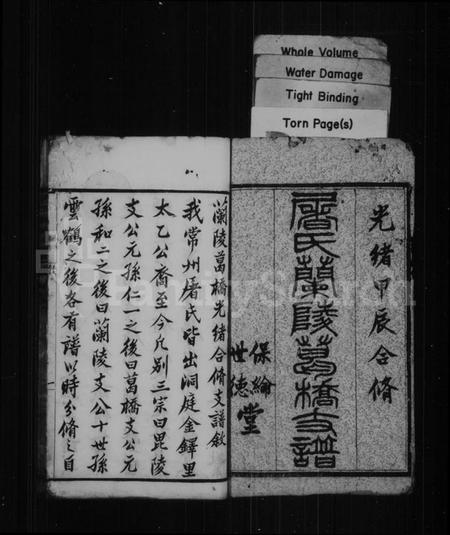 Whole Volume
Water Damage
Tight Binding
Torn Page(s)
光緒甲辰合脩
屠氏蘭陵葛橋支譜
保綸
世德
堂
蘭陵葛橋光緒合脩支譜敘
我常州屠氏皆出洞庭金鐸里
太乙公裔至今凡別三宗曰毘陵
支公元孫仁一之後曰葛橋支公元
孫和二之後曰蘭陵支公十世孫
雲鶴之後各有譜以時分脩之自
一
FamilySearch